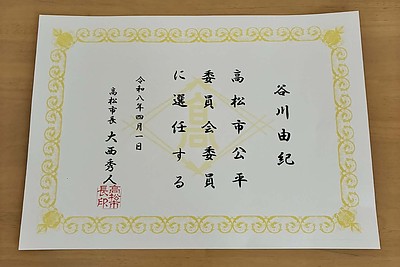 谷川由紀
高松市公平
委員会委員
に選任する
令和八年四月一日
高松市長 大西秀人
高松市
長印